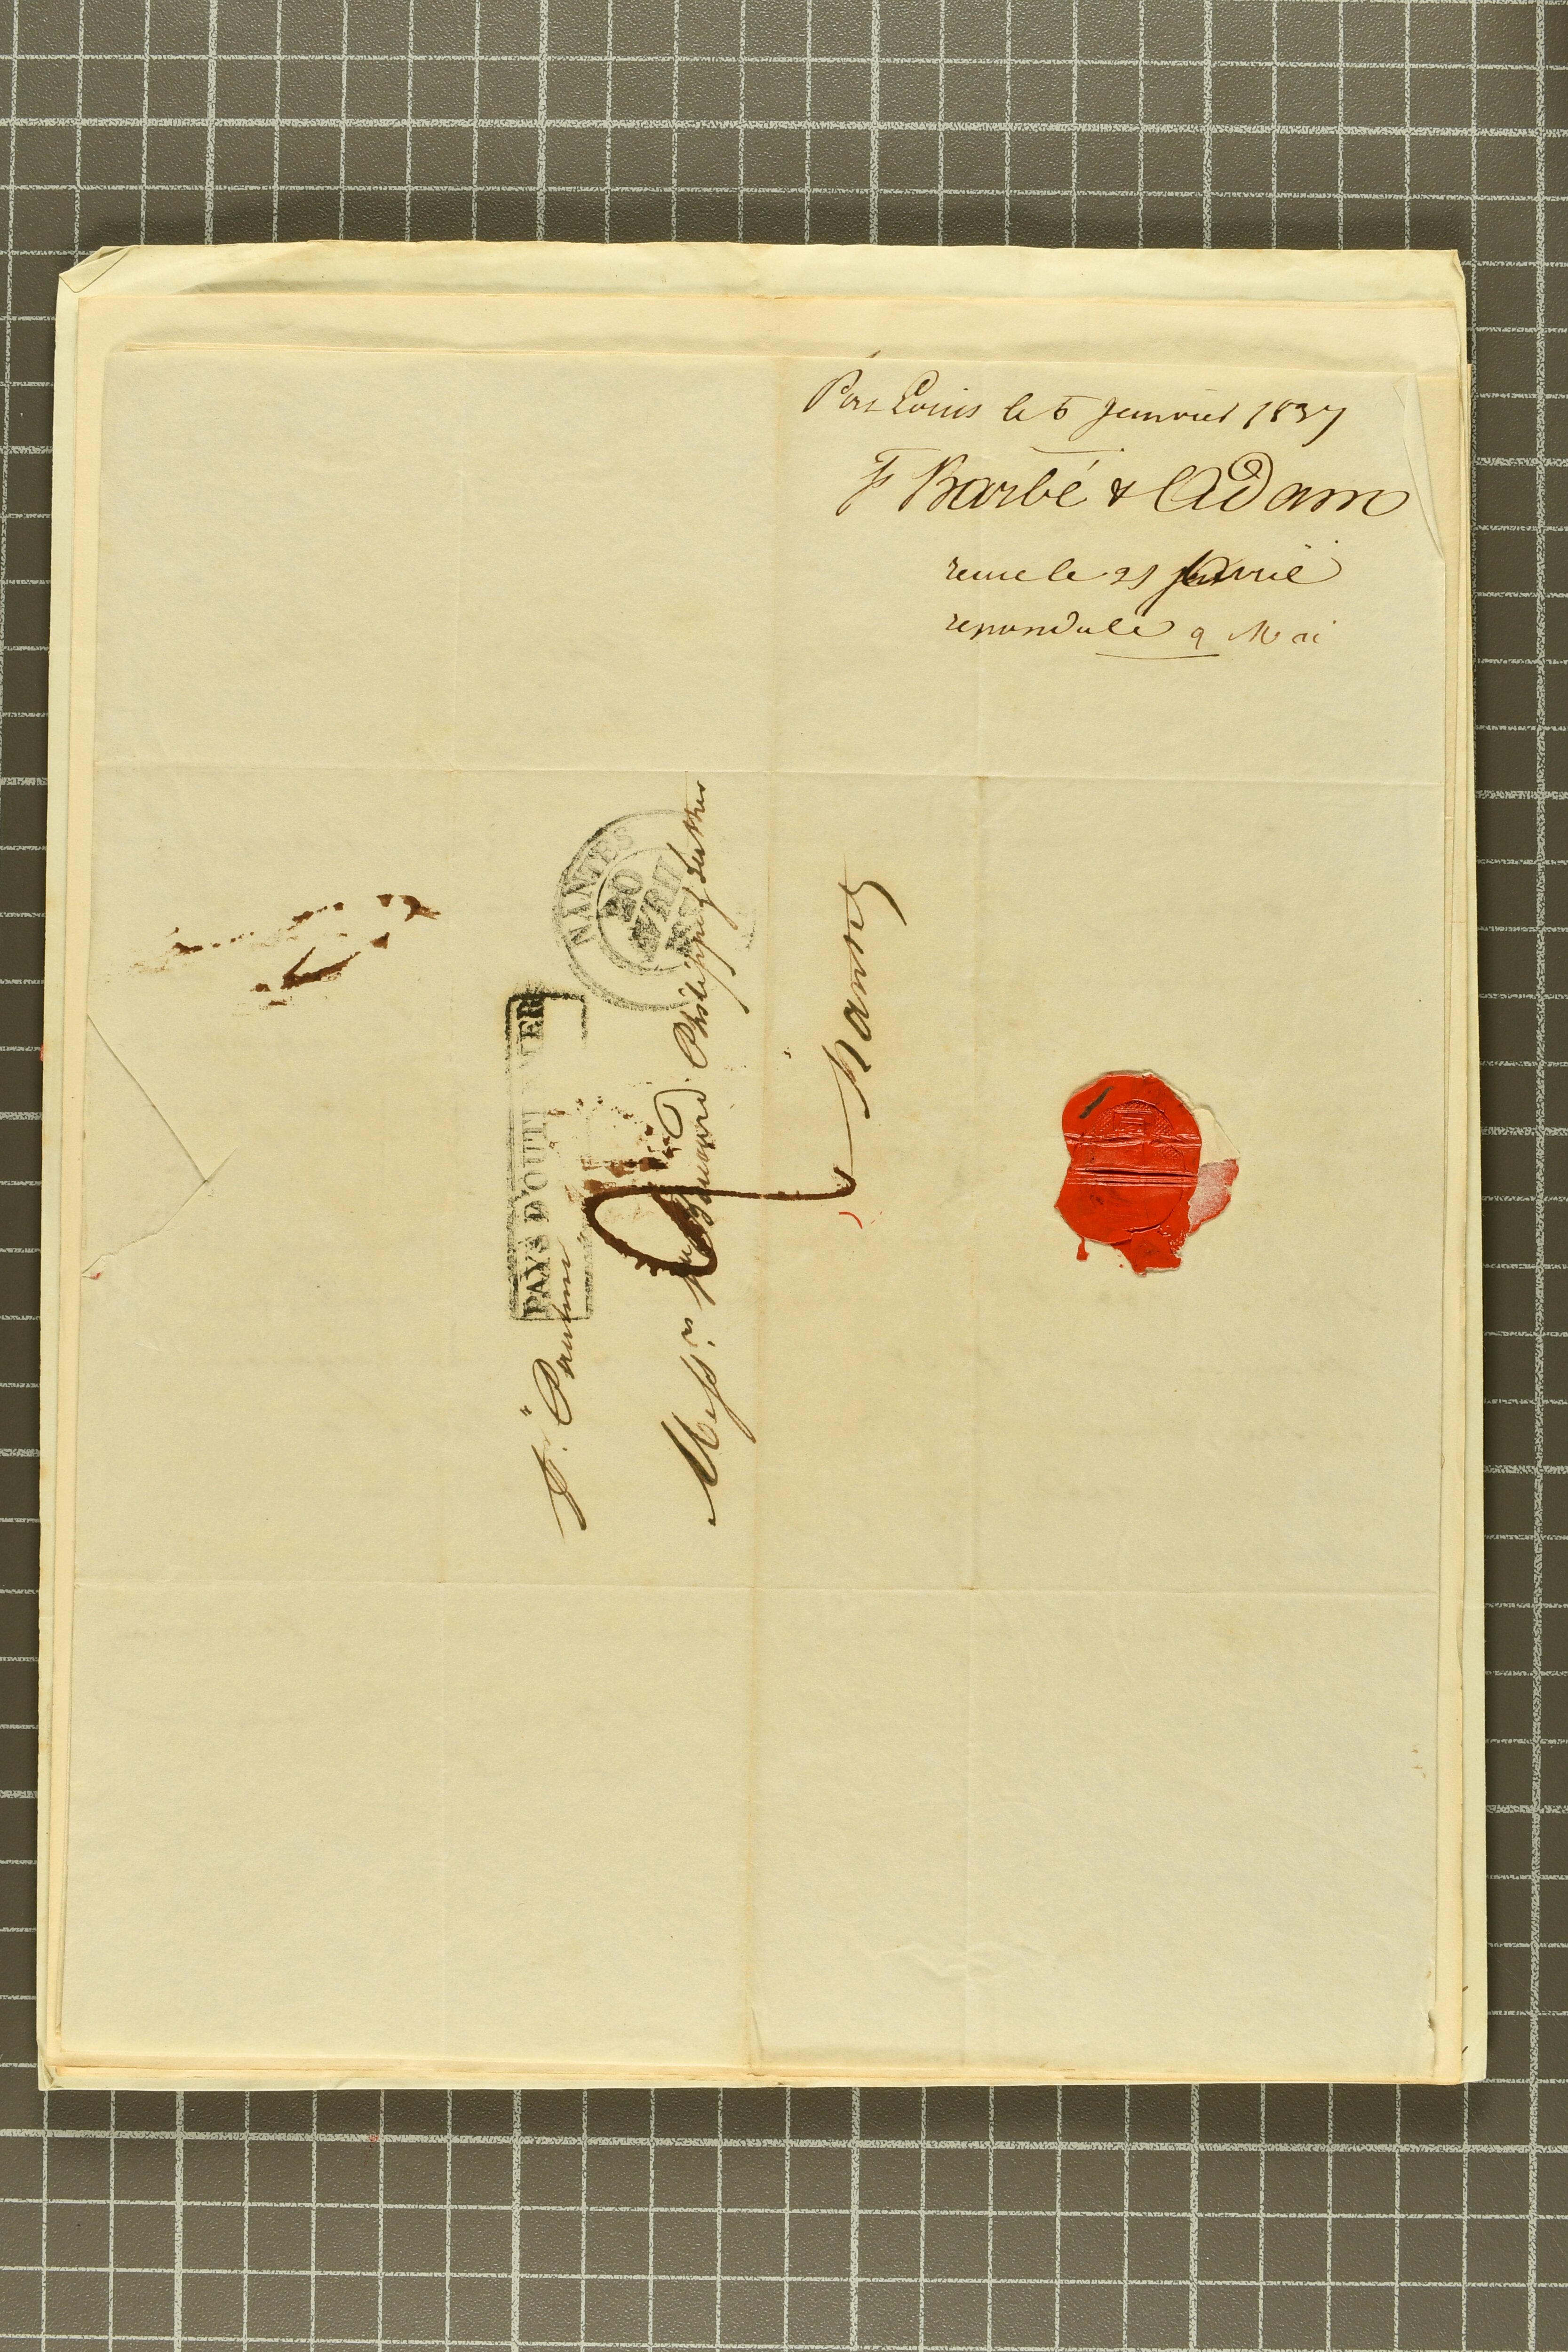 Port Louis le 5 Janvier 1837
Fs Barbé & Adam
recue le 21 Avril
repondu le 9 Mai
NANTES
20
AVRIL
PAYS D'OUTREMER
Pr "Pauline"
Messrs Philippe
Nantes